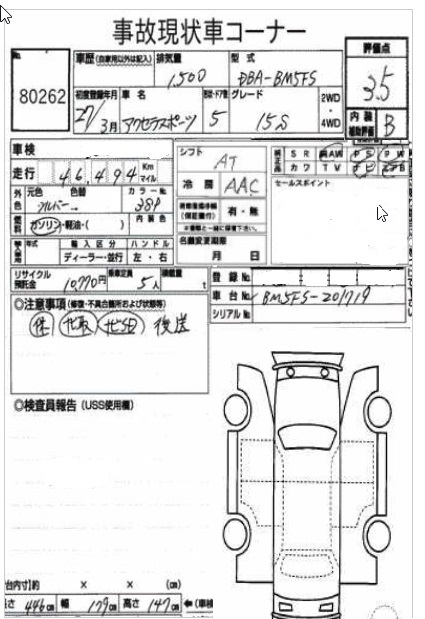 事故現状車コーナー
No. 80262
車歴(自家用以外は記入) 排気量 1,500 型式 DBA-BM5FS
評価点 3.5
初度登録年月 27/3月 車名 アクセラスポーツ ドア数 5 グレード 15S 2WD・4WD
内装補助評価 B
車検
走行 46,494 Km マイル
シフト AT
冷房 AAC
純正品 SR AW PS PW
カワ TV ナビ
外色 元色 色替 カラーNo.
シルバー 38P
燃料 ガソリン・軽油・( ) 内装色
(保証書付) 有・無
セールスポイント
年式 輸入区分 ハンドル
ディーラー・並行 左・右
名義変更期限
月 日
リサイクル預託金 10,770円 乗車定員 5人 積載量 t
登録No.
車台No. BM5FS-201719
シリアルNo.
◎注意事項(修復・不具合箇所および状態等)
後送
◎検査員報告(USS使用欄)
台内寸)約 × × (cm)
長さ 446cm 幅 179cm 高さ 147cm ←(車検